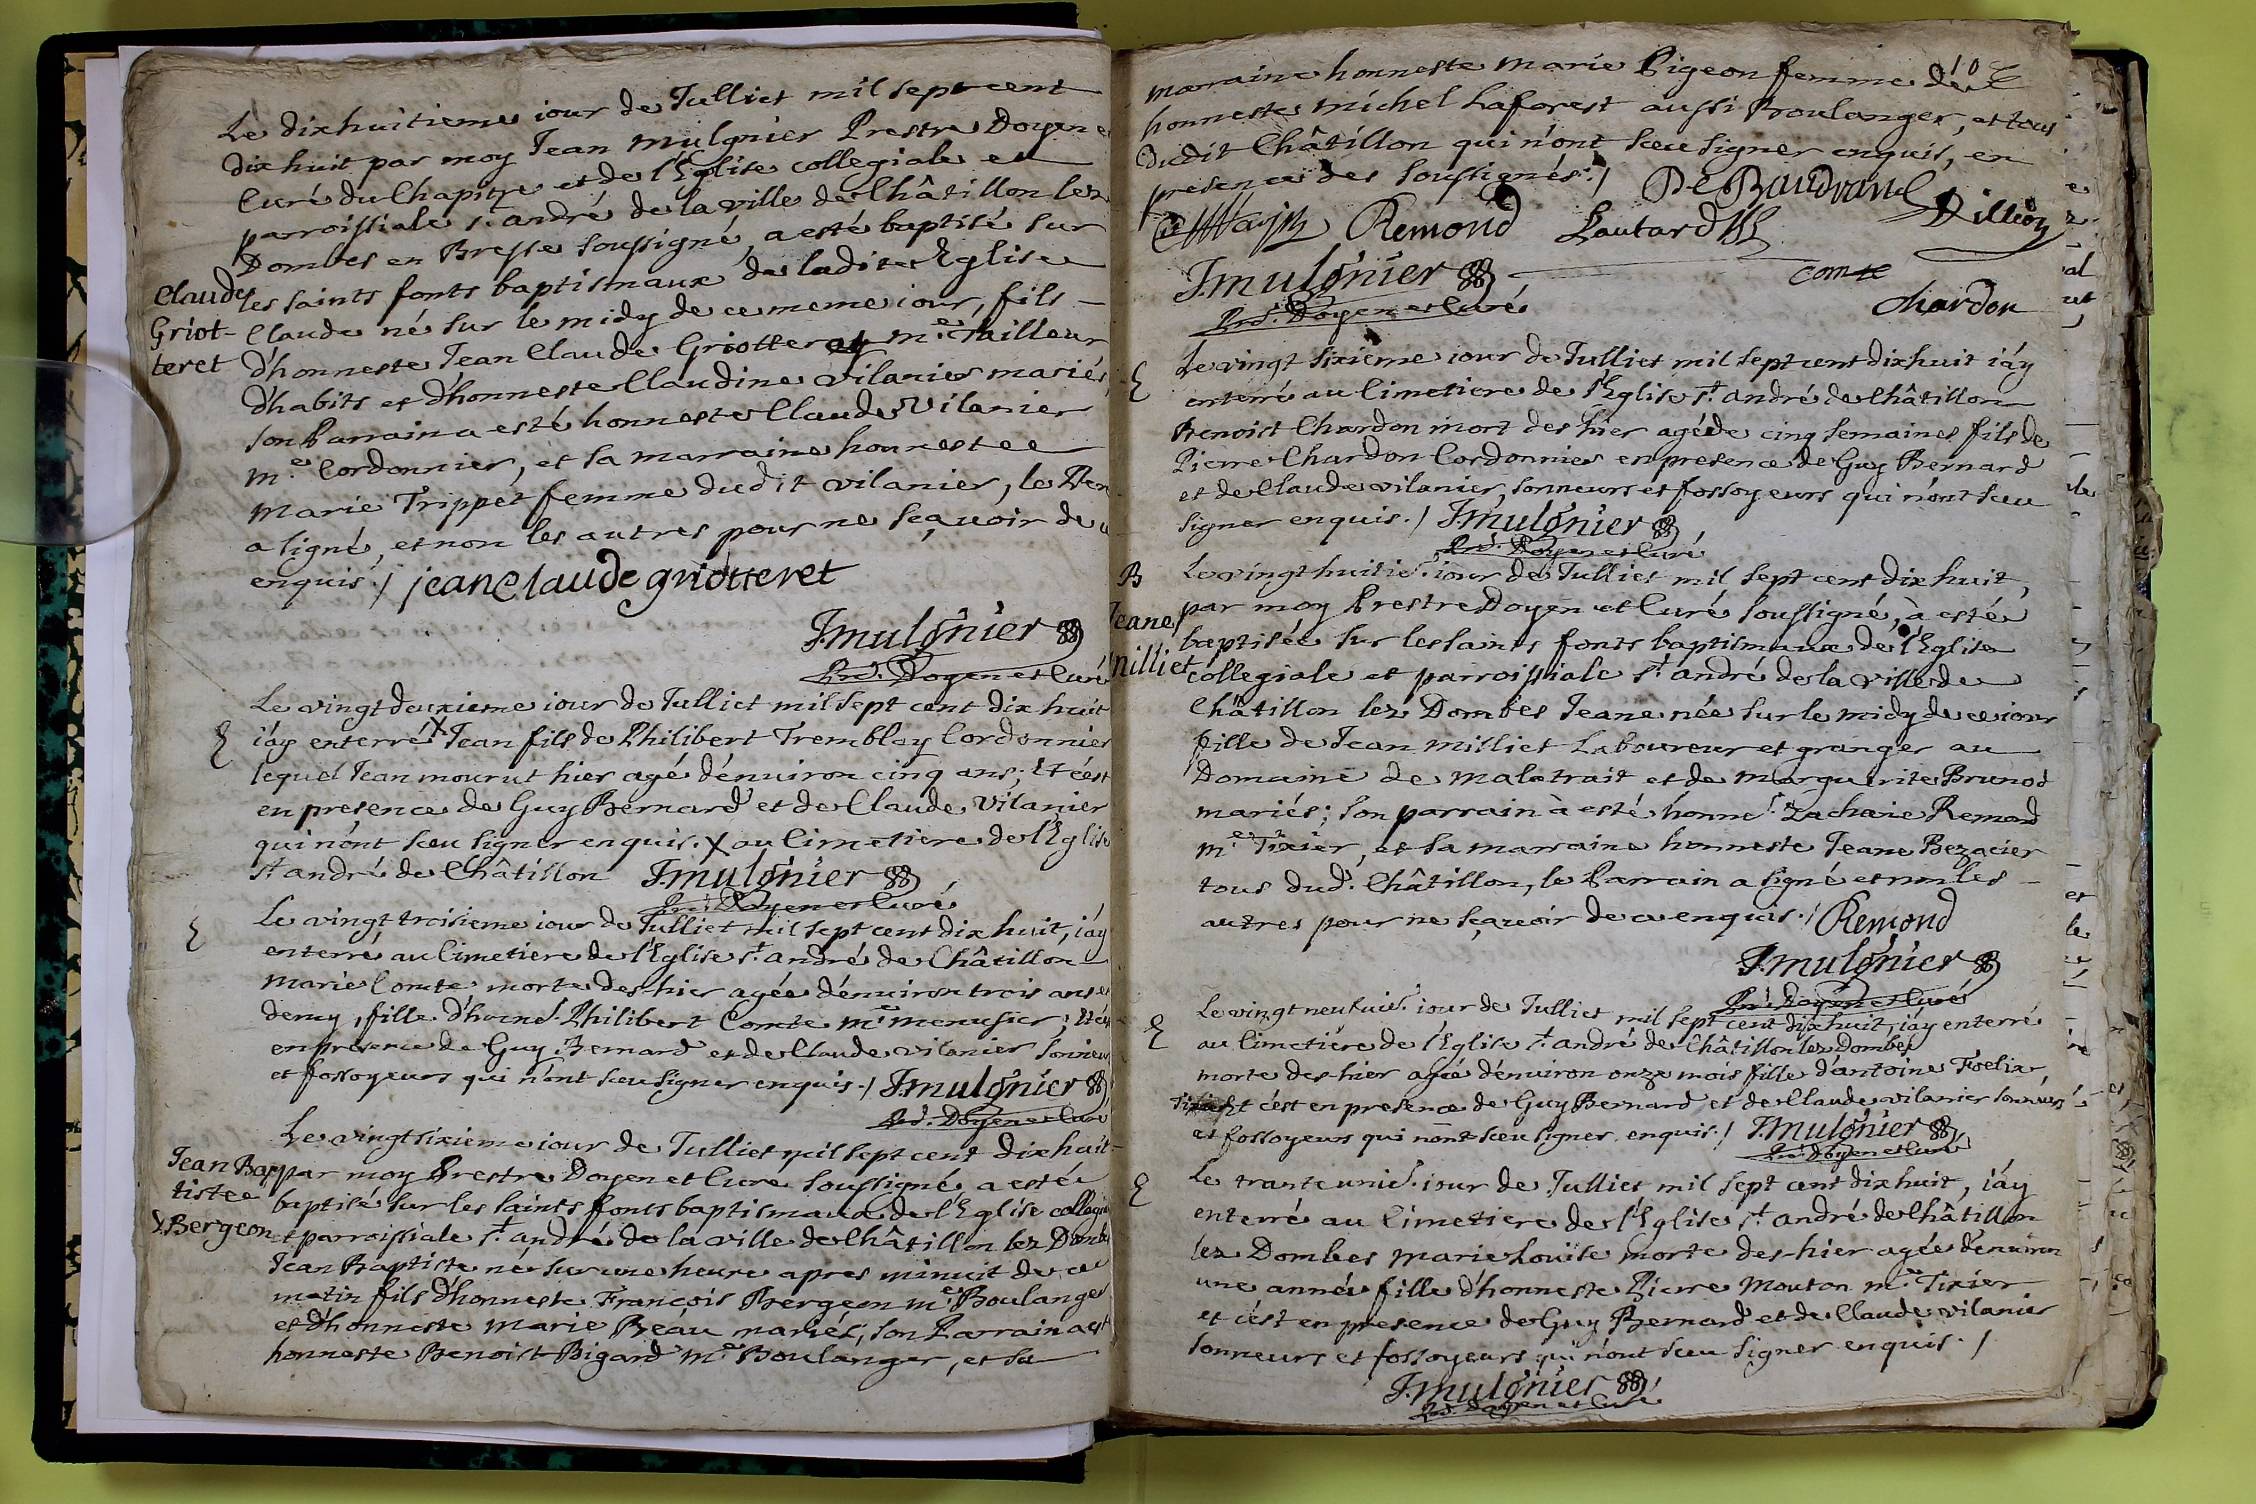 Le dixhuitieme iour de Julliet mil sept cent
dix huit par moy Jean Mulgnier Prestre Doyen e
Curé du Chapitre et de l'Eglise collegiale et
parroissiale s. andré de la ville de Châtillon lez
Dombes en Bresse soussigné, a esté baptisé sur
les saints fonts baptismaux de laditte Eglise
Claude
Griot-
teret
Claude né sur le midy de ce meme iour, fils -
d'honneste Jean Claude Griotteray me. Tailleur
d'habits et d'honneste Claudine Vilanier mariés,
son Parrain a esté honneste Claude Vilanier
me. Cordonnier, et sa marraine honnestee
Marie Trippet femme dudit vilanier, le Pere
a signé, et non les autres pour ne sçavoir de ce
enquis ./ jean Claude griotteret
J. mulgnier
Prd. Doyen et Curé
Le vingt deuxieme iour de Julliet mil sept cent dix huit
E
i'ay enterré X Jean fils de Philibert Tremblay Cordonnier
lequel Jean mourut hier agé d'environ cinq ans; Et c'est
en presence de Guy Bernard et de Claude Vilanier
qui n'ont sceu signer enquis. X au Cimetiere de l'Eglise
st. andré de Châtillon J. mulgnier
Prd. Doyen et Curé
E
Le vingt troisieme iour de Julliet mil sept cent dix huit, i'ay
enterré au Cimetiere de l'Eglise st. andré de Châtillon
Marie Comte morte des-hier agée d'environ trois ans et
demy, fille d'honne. Philibert Comte me. menusier; Et c'est
en presence de Guy Bernard et de Claude vilanier sonneurs
et fossoyeurs qui n'ont sceu signer enquis ./ J. mulgnier
Prd. Doyen et Curé
Le vingt sixieme iour de Julliet mil sept cent dix huit -
Jean Bap
tistee
Bergeon
par moy Prestre Doyen et Curé soussigné a esté
baptisé sur les saints fonts baptismaux de l'Eglise collegia
et parroissiale st. andré de la ville de Châtillon lez Dombes
Jean Baptiste né sur une heure apres minuit de ce
matin fils d'honneste François Bergeon me. Boulanger
et d'honneste Marie Beau mariés, son Parrain a esté
honneste Benoist Bigard me. Boulanger, et sa
10
marraine honneste Marie Pigeon femme de
honneste Michel Laforest aussi Boulanger, et tous
dudit Châtillon qui n'ont sceu signer enquis, en
presence des soussignés ./ De Baudrand Dillion
Remond Lautard
J. mulgnier
comte
Prd. Doyen et Curé
chardon
E
Le vingt sixieme iour de Julliet mil sept cent dix huit i'ay
enterré au Cimetiere de l'Eglise st. andré de Châtillon
Benoist Chardon mort des hier agé de cinq semaines fils de
Pierre Chardon Cordonnier en presence de Guy Bernard
et de Claude vilanier, sonneurs et fossoyeurs qui n'ont sceu
signer enquis ./ J. mulgnier
Prd. Doyen et Curé
B
Jeane
Milliet
Le vingt huitie. iour de Julliet mil sept cent dix huit,
par moy Prestre Doyen et Curé soussigné, à esté
baptisée sur les saints fonts baptismaux de l'Eglise
collegiale et parroissiale st. andré de la ville de
Châtillon lez Dombes Jeane née sur le midy de ce iour
fille de Jean Milliet Laboureur et granger au
Domaine de malatrait et de Marguerite Brunod
mariés; son parrain à esté honne. Zacharie Remond
me. Tixier, et sa marraine honneste Jeane Bezacier
tous dud. Châtillon, le Parrain a signé et non les -
autres pour ne sçavoir de ce enquis ./ Remond
J. mulgnier
Prd. Doyen et Curé
E
Le vingt neufvie. iour de Julliet mil sept cent dix huit, i'ay enterré
au Cimetiere de l'Eglise st. andré de Châtillon lez Dombes
morte des-hier agée d'environ onze mois fille d'antoine Foelix
Tixier Et c'est en presence de Guy Bernard et de Claude vilanier sonneurs
et fossoyeurs qui n'ont sceu signer enquis ./ J. mulgnier
Prd. Doyen et Curé
E
Le trante unie. iour de Julliet mil sept cent dix huit, i'ay
enterré au Cimetiere de l'Eglise st. andré de Châtillon
lez Dombes Marie Louise morte des-hier agée d'environ
une année fille d'honneste Pierre Mouton me. Tixier
et c'est en presence de Guy Bernard et de Claude vilanier
sonneurs et fossoyeurs qui n'ont sceu signer enquis ./
J. mulgnier
Prd. Doyen et Curé